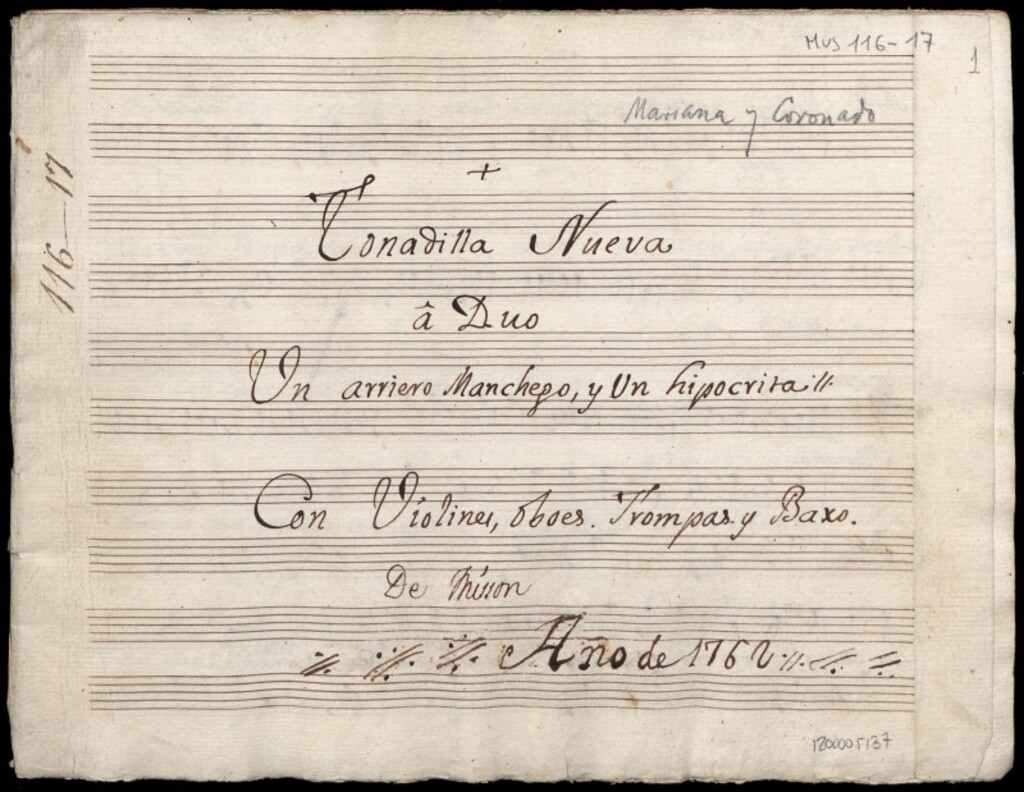 MUS 116-17
1
Mariana y Coronado
116-17
+
Tonadilla Nueva
â Duo
Un arriero Manchego, y Un hipocrita
Con Violines, oboes. Trompas. y Baxo.
De Misson
Año de 1762
1200005137